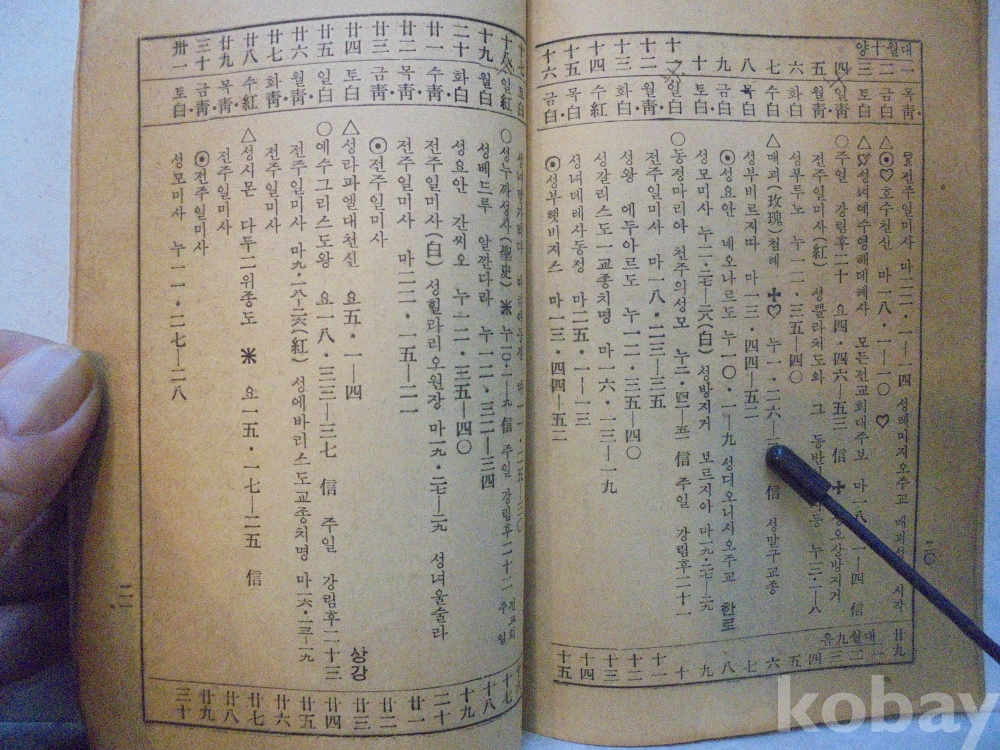 양十월대
一 목靑 전주일미사 마二二·一—一四 성레미지오주교 시작 廿九
二 금白 △⊙♡호수천신 마一八·一—一〇 ♡
三 토白 △성녀예수영해데레사 모든전교회대주보 마一八·一—四 信
四 ○주일 강림후二十 요四·四六—五三 信 ✠
五 월靑 전주일미사(紅) 그 四
六 화白 성부루노 누一二·三五—四〇 五
七 수白 △매괴(玫瑰)첨례 ✠♡ 누一·二六— 信 성말구교종 六
八 목白 성부비르지따 마一三·四四—五二 七
九 금白 ⊙성요안 네오나르도 누一〇·一—九 성디오니시오주교 한로 八
十 토白 성모미사 누一一·二七—二八(白) 성방지거 보르지아 마一九·二七—二九 九
十一 일白 ○동정마리아 천주의성모 누二·四一—五一 信 주일 강림후二十一 十
十二 월靑 전주일미사 마一八·二三—三五 十一
十三 화白 성왕 에두아르도 누一二·三五—四〇 十二
十四 수紅 성갈리스도一교종치명 마一六·一三—一九 十三
十五 목白 성녀데레사동정 마二五·一—一三 十四
十六 금白 ⊙성부헷비지스 마一三·四四—五二 十五
윤九월대
二〇
十七 토白
十八 일紅 ○성누까성사(聖史) 米 누一〇·一—九 信 주일 강림후二十二 十七
十九 월白 성베드루 알깐다라 누一二·三二—三四 十八
二十 화白 성요안 간씨오 누一二·三五—四〇 十九
廿一 수靑 전주일미사(白) 성힐라리오원장 마一九·二七—二九 성녀울술라 二十
廿二 목靑 전주일미사 마二二·一五—二一 廿一
廿三 금靑 ⊙전주일미사 廿二
廿四 토白 △성라파엘대천신 요五·一—四 상강 廿三
廿五 일白 ○예수그리스도왕 요一八·三三—三七 信 주일 강림후二十三 廿四
廿六 월靑 전주일미사 마九·一八—二六(紅) 성에바리스도교종치명 마一六·一三—一九 廿五
廿七 화靑 전주일미사 廿六
廿八 수紅 △성시몬 다두二위종도 米 요一五·一七—二五 信 廿七
廿九 목靑 전주일미사 廿八
三十 금靑 ⊙전주일미사 廿九
卅一 토白 성모미사 누一一·二七—二八 三十
二一
kobay